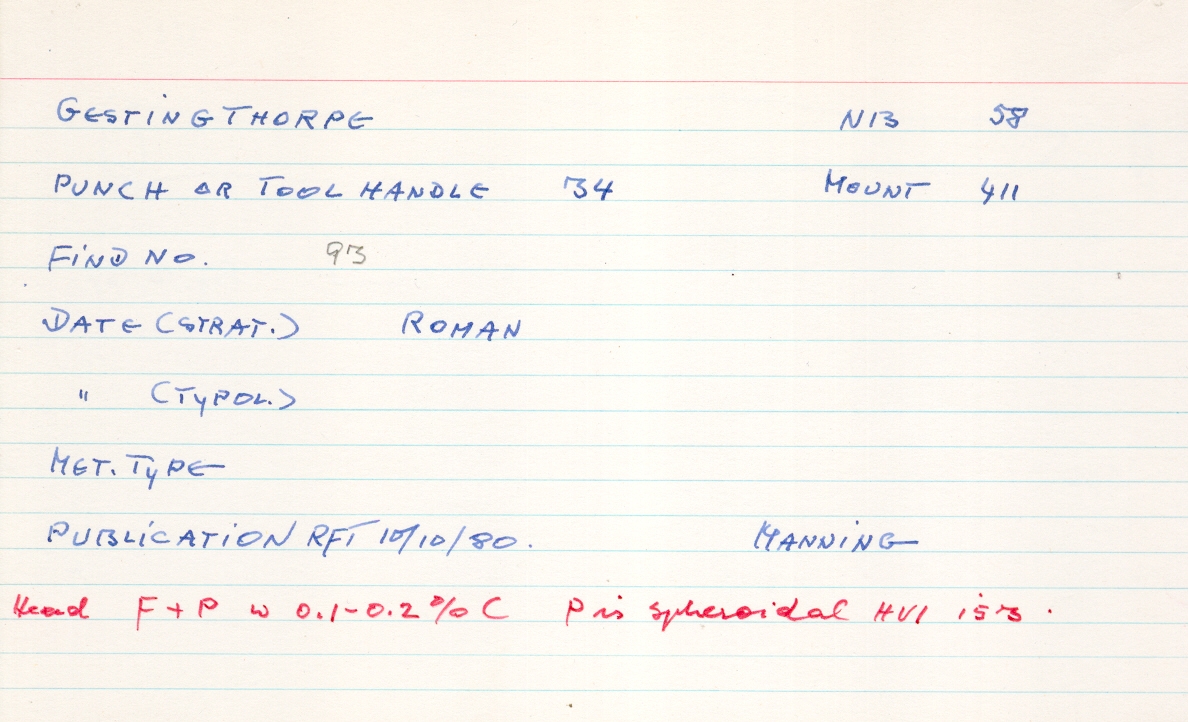 GESTINGTHORPE NB 58
PUNCH OR TOOL HANDLE 34 MOUNT 411
FIND NO. 93
DATE (STRAT.) ROMAN
" (TYPOL.)
MET. TYPE
PUBLICATION RFT 10/10/80. MANNING
Head F + P w 0.1-0.2 % C P is spheroidal HV1 153.